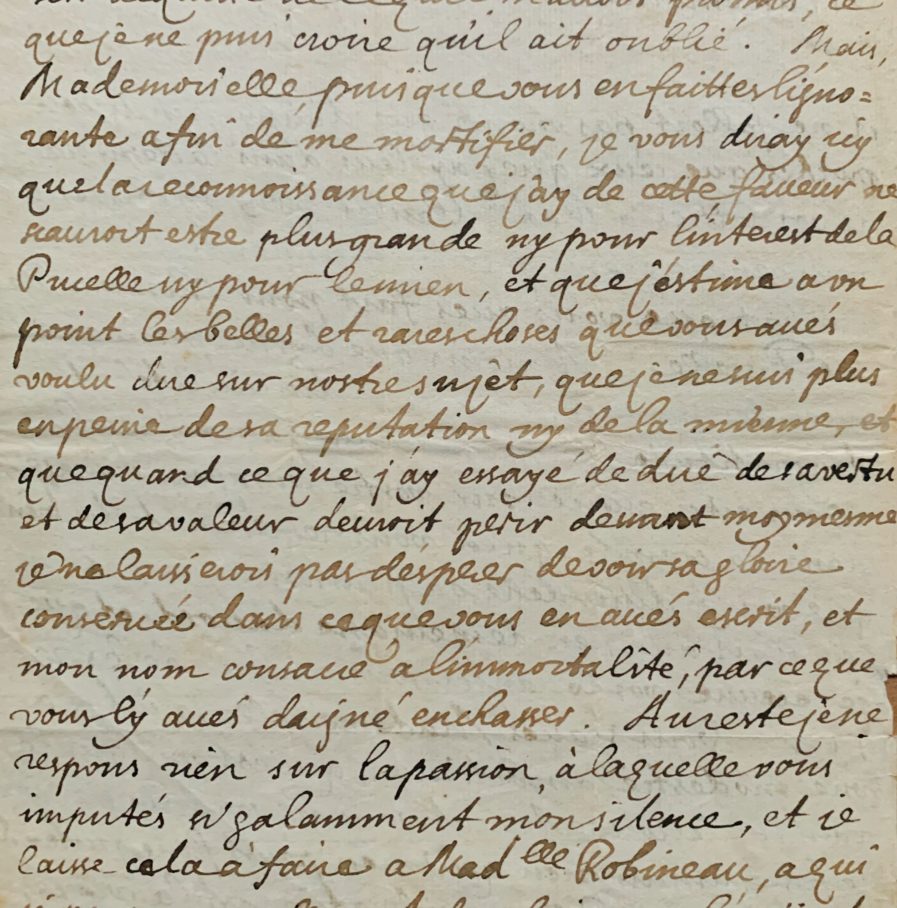 que je ne puis croire qu'il ait oublié. Mais,
Mademoiselle, puisque vous en faittes ligno=
rante afin de me mortifier, je vous diray icy
que la reconnoissance que j'ay de cette faveur ne
scauroit estre plus grande ny pour l'interest de la
Pucelle ny pour le mien, et que j'estime a vn
point les belles et rares choses que vous aués
voulu dire sur nostre sujet, que je ne suis plus
en peine de sa reputation ny de la mienne, et
que quand ce que j'ay essayé de dire de sa vertu
et de sa valeur devroit perir devant moy mesme
je ne laisserois pas d'esperer de voir sa gloire
conseruée dans ce que vous en aués escrit, et
mon nom consacré a l'immortalité, par ce que
vous l'y aués daigné enchasser. Au reste je ne
respons rien sur la passion à laquelle vous
imputés si galamment mon silence, et je
laisse cela à faire a Mad.lle Robineau, a qui